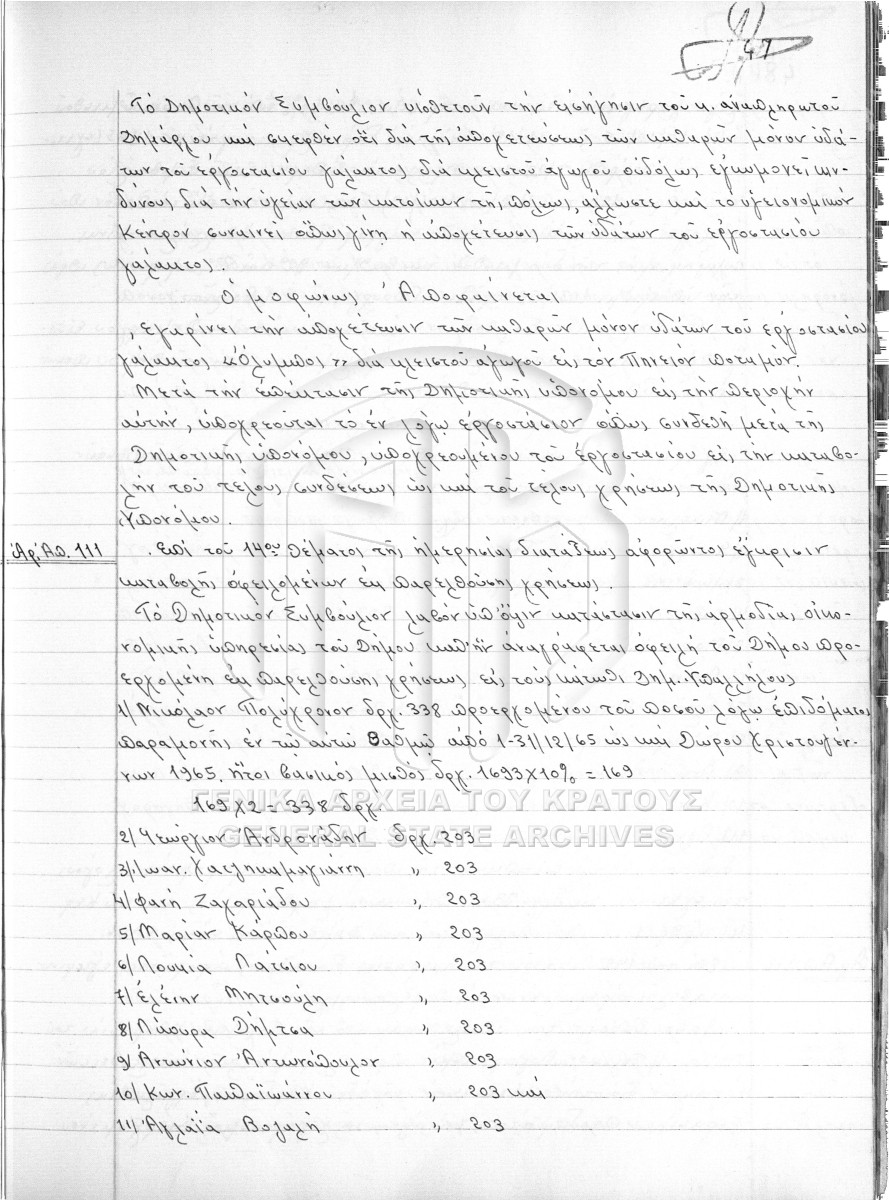 47
Τό Δημοτικόν Συμβούλιον υἱοθετοῦν τήν εἰσήγησιν τοῦ κ. ἀναπληρωτοῦ
Δημάρχου καί σκεφθέν ὅτι διά τῆς ἀποχετεύσεως τῶν καθαρῶν μόνον ὑδά-
των τοῦ ἐργοστασίου γάλακτος διά κλειστοῦ ἀγωγοῦ οὐδόλως ἐγκυμονεῖ κιν-
δύνους διά τήν ὑγείαν τῶν κατοίκων τῆς πόλεως, ἄλλωστε καί το ὑγειονομικόν
Κέντρον συναινεῖ ὅπως γίνῃ ἡ ἀποχέτευσις τῶν ὑδάτων τοῦ ἐργοστασίου
γάλακτος.
Ὁμοφώνως Ἀποφαίνεται
, ἐγκρίνει τήν ἀποχέτευσιν τῶν καθαρῶν μόνον ὑδάτων τοῦ ἐργοστασίου
γάλακτος «Ὄλυμπος» διά κλειστοῦ ἀγωγοῦ εἰς τόν Πηνειόν ποταμόν.
Μετά τήν ἐπέκτασιν τῆς Δημοτικῆς ὑπονόμου εἰς τήν περιοχήν
αὐτήν, ὑποχρεοῦται τό ἐν λόγῳ ἐργοστάσιον ὅπως συνδεθῇ μετά τῆς
Δημοτικῆς ὑπονόμου, ὑποχρεουμένου τοῦ ἐργοστασίου εἰς τήν καταβο-
λήν τοῦ τέλους συνδέσεως ὡς καί τοῦ τέλους χρήσεως τῆς Δημοτικῆς
Ὑπονόμου.
Ἀρ. Ἀπ. 111 . Ἐπί τοῦ 14ου θέματος τῆς ἡμερησίας διατάξεως ἀφορῶντος ἔγκρισιν
καταβολῆς ὀφειλομένων ἐκ παρελθούσης χρήσεως.
Τό Δημοτικόν Συμβούλιον λαβόν ὑπ' ὄψιν κατάστασιν τῆς ἁρμοδίας οἰκο-
νομικῆς ὑπηρεσίας τοῦ Δήμου καθ' ἥν ἀναγράφεται ὀφειλή τοῦ Δήμου προ-
ερχομένη ἐκ παρελθούσης χρήσεως εἰς τούς κάτωθι Δημ. Ὑπαλλήλους
1/ Νικόλαον Πολύχρονον δρχ. 338 προερχομένου τοῦ ποσοῦ λόγῳ ἐπιδόματος
παραμονῆς ἐν τῷ αὐτῷ βαθμῷ ἀπό 1-31/12/65 ὡς καί Δώρου Χριστουγέν-
νων 1965, ἤτοι βασικός μισθός δρχ. 1693 Χ 10% = 169
169 Χ 2 = 338 δρχ.
ΓΕΝΙΚΑ ΑΡΧΕΙΑ ΤΟΥ ΚΡΑΤΟΥΣ
GENERAL STATE ARCHIVES
2/ Γεώργιον Ἀνδρονάδην δρχ. 203
3/ Ἰωαν. Χατζηκαμαγιάννη " 203
4/ Φανή Ζαχαριάδου " 203
5/ Μαρίαν Κάρπου " 203
6/ Λουκία Λάτσιου " 203
7/ Ἑλένην Μητσούλη " 203
8/ Λάουρα Δήμτσα " 203
9/ Ἀντώνιον Ἀντωνόπουλον " 203
10/ Κων. Παπαϊωάννου " 203 καί
11/ Ἀγλαΐα Βογαλή " 203